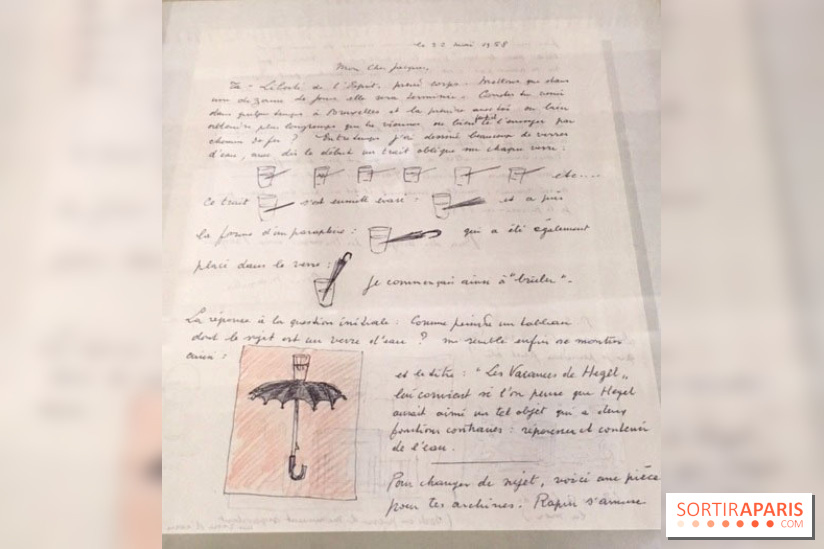 le 22 mai 1958
Mon Cher Jacques,
de l'Esprit prend corps. Mettons que dans
une dizaine de jours elle sera terminée. Comptes tu venir
dans quelque temps à Bruxelles et la ou bien
plus longtemps que tu viennes ou bien l'envoyer par
chemin de fer ? Entretemps j'ai dessiné beaucoup de verres
d'eau, avec dès le début un trait oblique sur chaque verre :
etc....
Ce trait s'est ensuite évasé : et a pris
la forme d'un parapluie : qui a été également
placé dans le verre :
Je commençais ainsi à "brûler".
La réponse à la question initiale : Comme peindre un tableau
dont le sujet est un verre d'eau ? me semble enfin se montrer
ainsi :
et le titre : "Les Vacances de Hegel„
lui convient si l'on pense que Hegel
aurait aimé un tel objet qui a deux
fonctions contraires : repousser et contenir
de l'eau.
Pour changer de sujet, voici une pièce
pour tes archives : Rapin s'amuse
SORTIRAPARIS
.COM